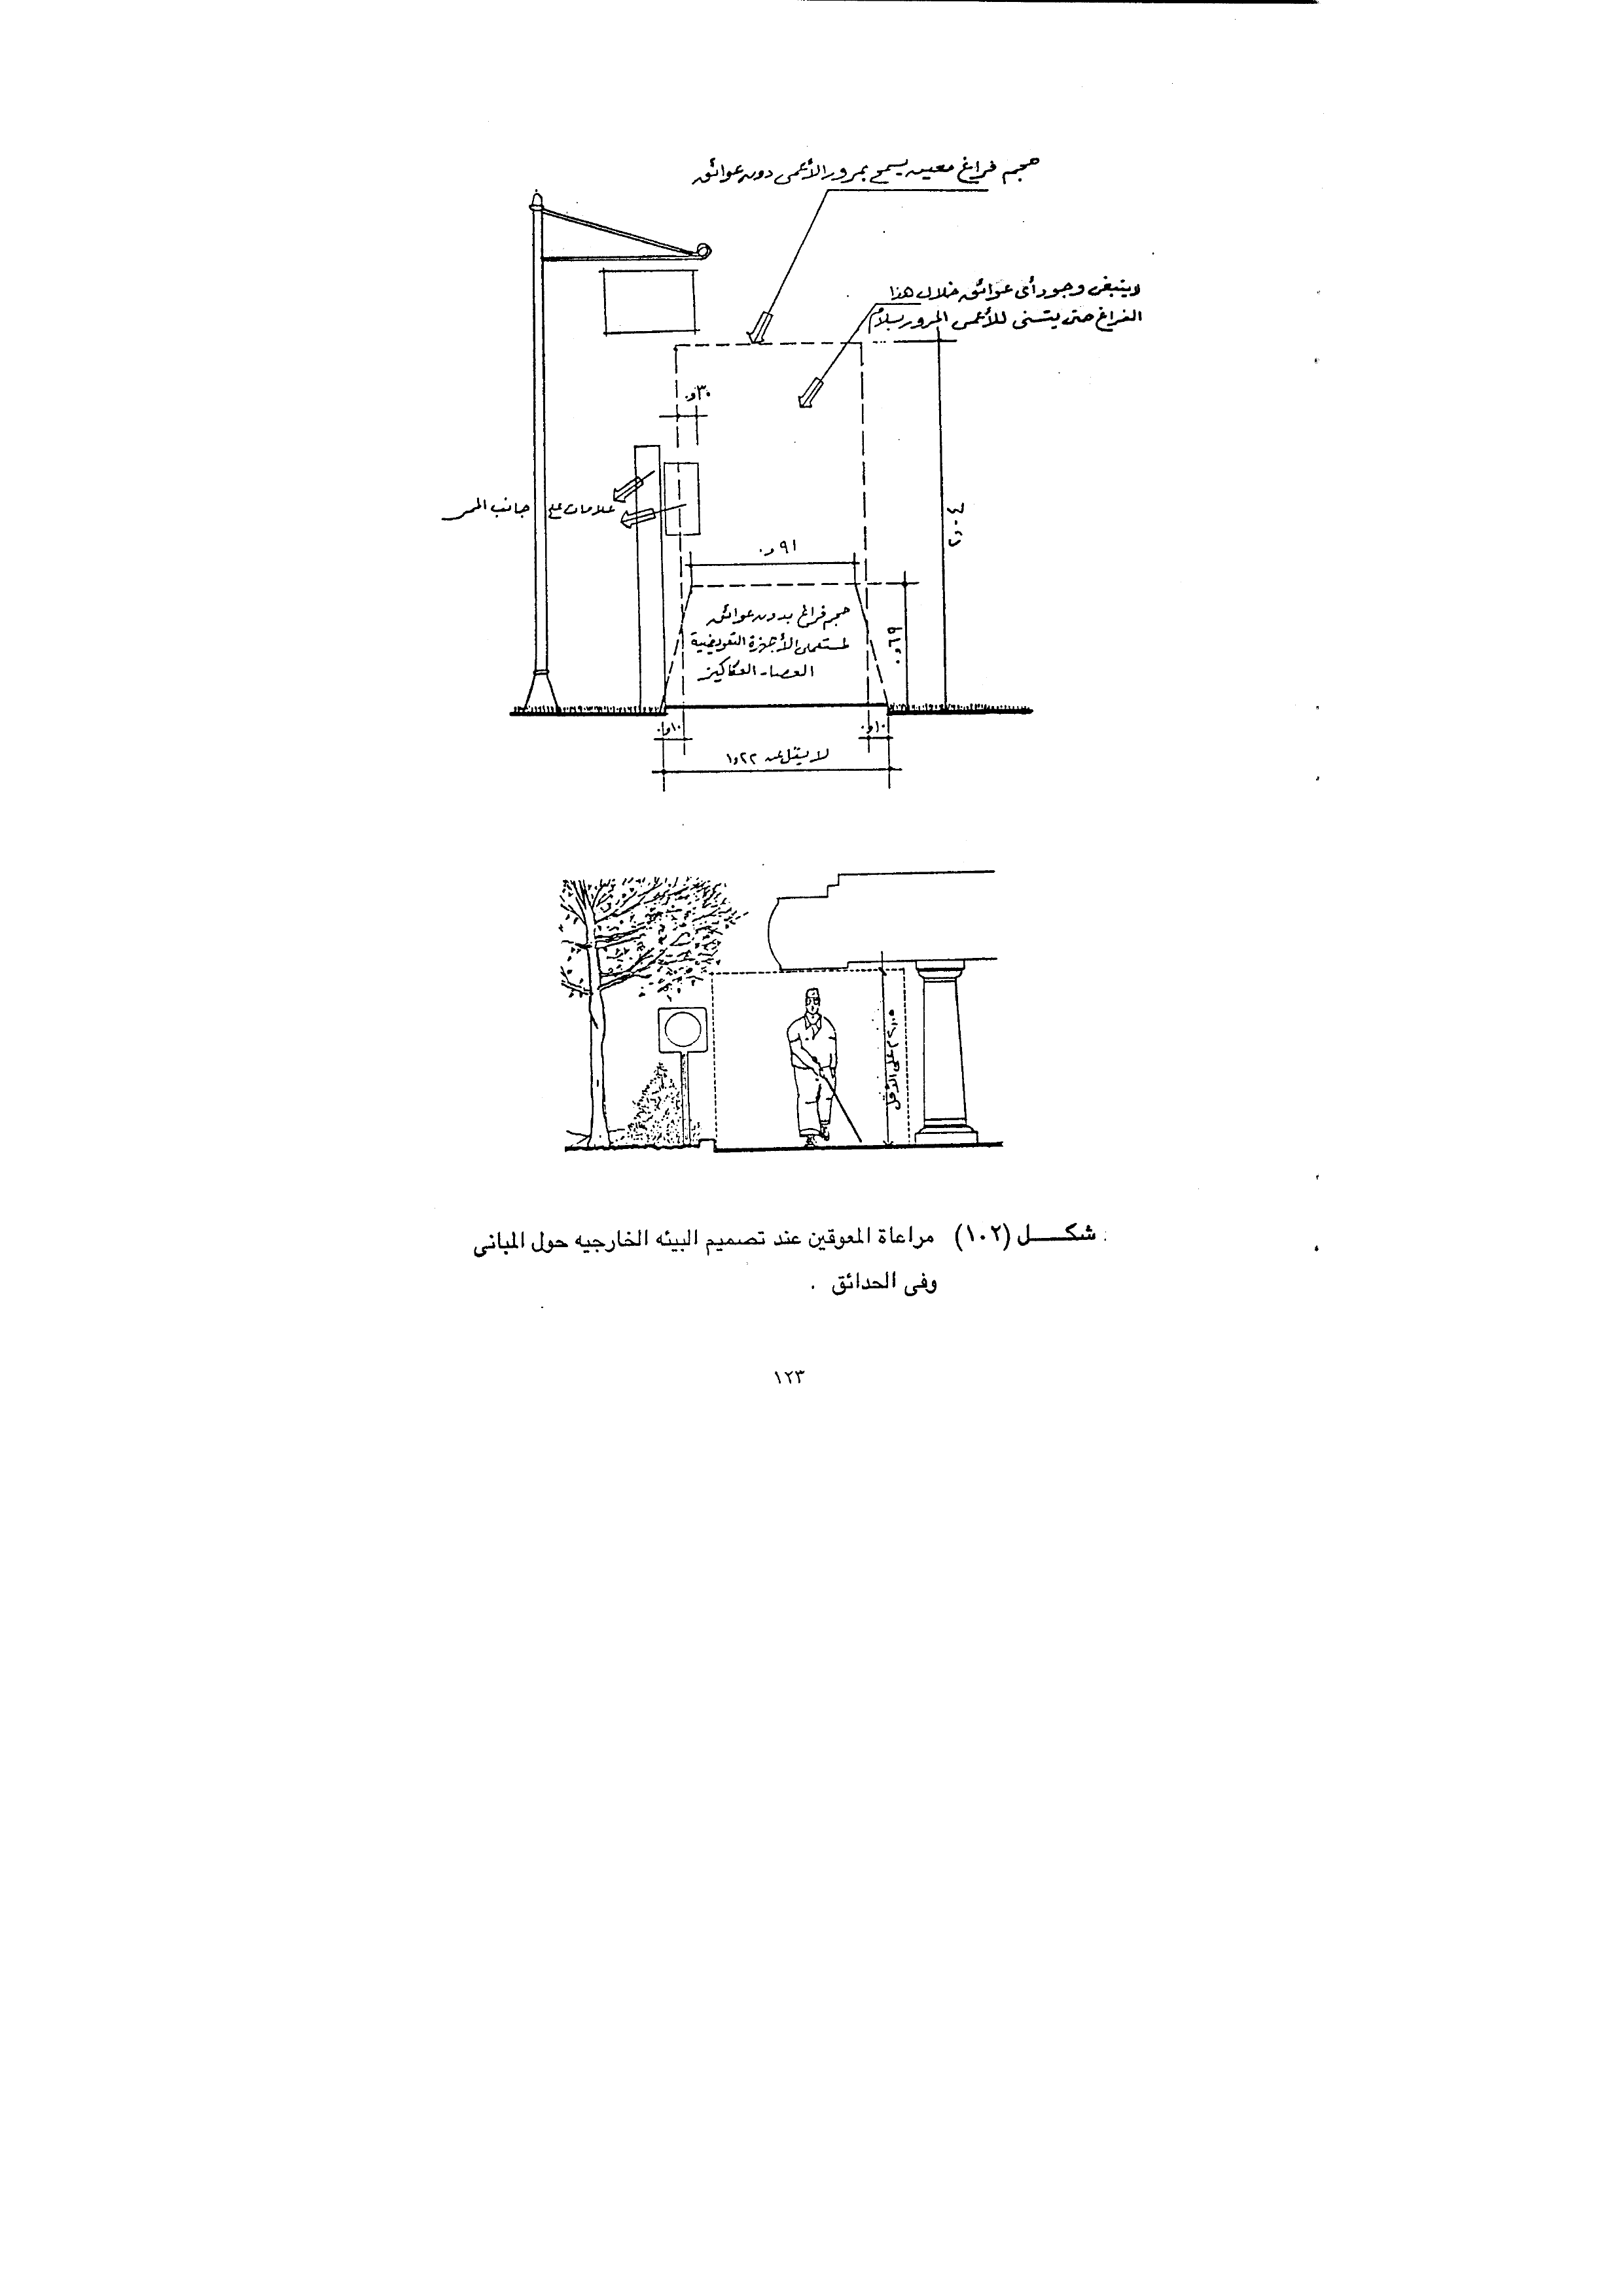 حجم فراغ معين يسمح بمرور الأعمى دون عوائق
لاينبغى وجود أى عوائق خلال هذا
الفراغ حتى يتسنى للأعمى المرور بسلام
٠,٣٠
علامات على جانب الممر
٢,٠٤
٠,٩١
حجم فراغ بدون عوائق
لمستعملى الأجهزة التعويضية
العصا - العكاكيز
٠,٦٩
٠,١٠
٠,١٠
لا يقل عن ١,٢٢
على الأقل
شكل (١٠٢) مراعاة المعوقين عند تصميم البيئه الخارجيه حول المبانى
وفى الحدائق .
١٢٣